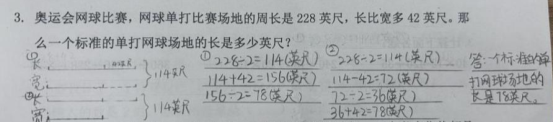 3. 奥运会网球比赛，网球单打比赛场地的周长是 228 英尺，长比宽多 42 英尺。那
么一个标准的单打网球场地的长是多少英尺？
① 长
宽
114英尺
②长
宽
114英尺
① 228÷2=114(英尺)
114+42=156(英尺)
156÷2=78(英尺)
② 228÷2=114(英尺)
114-42=72(英尺)
72÷2=36(英尺)
36+42=78(英尺)
答:一个标准的单
打网球场地的
长是78英尺。